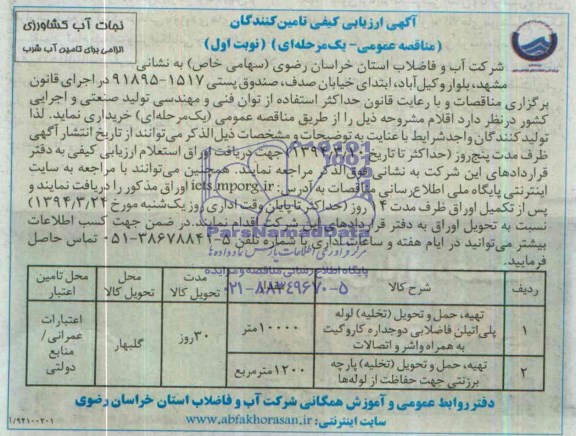 آگهی ارزیابی کیفی تامین‌کنندگان
(مناقصه عمومی- یک‌مرحله‌ای) (نوبت اول)
نجات آب کشاورزی
الزامی برای تامین آب شرب
شرکت آب و فاضلاب استان خراسان رضوی (سهامی خاص) به نشانی
مشهد، بلوار وکیل‌آباد، ابتدای خیابان صدف، صندوق پستی ۱۵۱۷-۹۱۸۹۵ در اجرای قانون
برگزاری مناقصات و با رعایت قانون حداکثر استفاده از توان فنی و مهندسی تولید صنعتی و اجرایی
کشور در نظر دارد اقلام مشروحه ذیل را از طریق مناقصه عمومی (یک‌مرحله‌ای) خریداری نماید. لذا
تولیدکنندگان واجد شرایط با عنایت به توضیحات و مشخصات ذیل‌الذکر می‌توانند از تاریخ انتشار آگهی
ظرف مدت پنج‌روز (حداکثر تا تاریخ جهت دریافت اوراق استعلام ارزیابی کیفی به دفتر
قراردادهای این شرکت به نشانی فوق‌الذکر مراجعه نمایند. همچنین می‌توانند با مراجعه به سایت
اینترنتی پایگاه ملی اطلاع‌رسانی مناقصات به آدرس: iets.mporg.ir اوراق مذکور را دریافت نمایند و
پس از تکمیل اوراق ظرف مدت ۱۴ روز (حداکثر تا پایان وقت اداری روز یک‌شنبه مورخ ۱۳۹۴/۳/۲۴)
نسبت به تحویل اوراق به دفتر قراردادهای این شرکت اقدام نمایند. در ضمن جهت کسب اطلاعات
بیشتر می‌توانید در ایام هفته و ساعات اداری با شماره تلفن ۵-۳۸۶۷۸۸۴۱-۰۵۱ تماس حاصل
فرمایید.
ParsNamadData
مرکز فرآوری اطلاعات پارس نماد داده‌ها
پایگاه اطلاع رسانی مناقصه و مزایده
۰۲۱-۸۸۳۴۹۶۷۰-۵
ردیف شرح کالا مدت تحویل کالا محل تحویل کالا محل تامین اعتبار
۱ تهیه، حمل و تحویل (تخلیه) لوله پلی‌اتیلن فاضلابی دوجداره کاروگیت به همراه واشر و اتصالات ۱۰۰۰۰ متر ۳۰ روز گلبهار اعتبارات عمرانی/ منابع دولتی
۲ تهیه، حمل و تحویل (تخلیه) پارچه برزنتی جهت حفاظت از لوله‌ها ۱۲۰۰ مترمربع
دفتر روابط عمومی و آموزش همگانی شرکت آب و فاضلاب استان خراسان رضوی
سایت اینترنتی: www.abfakhorasan.ir